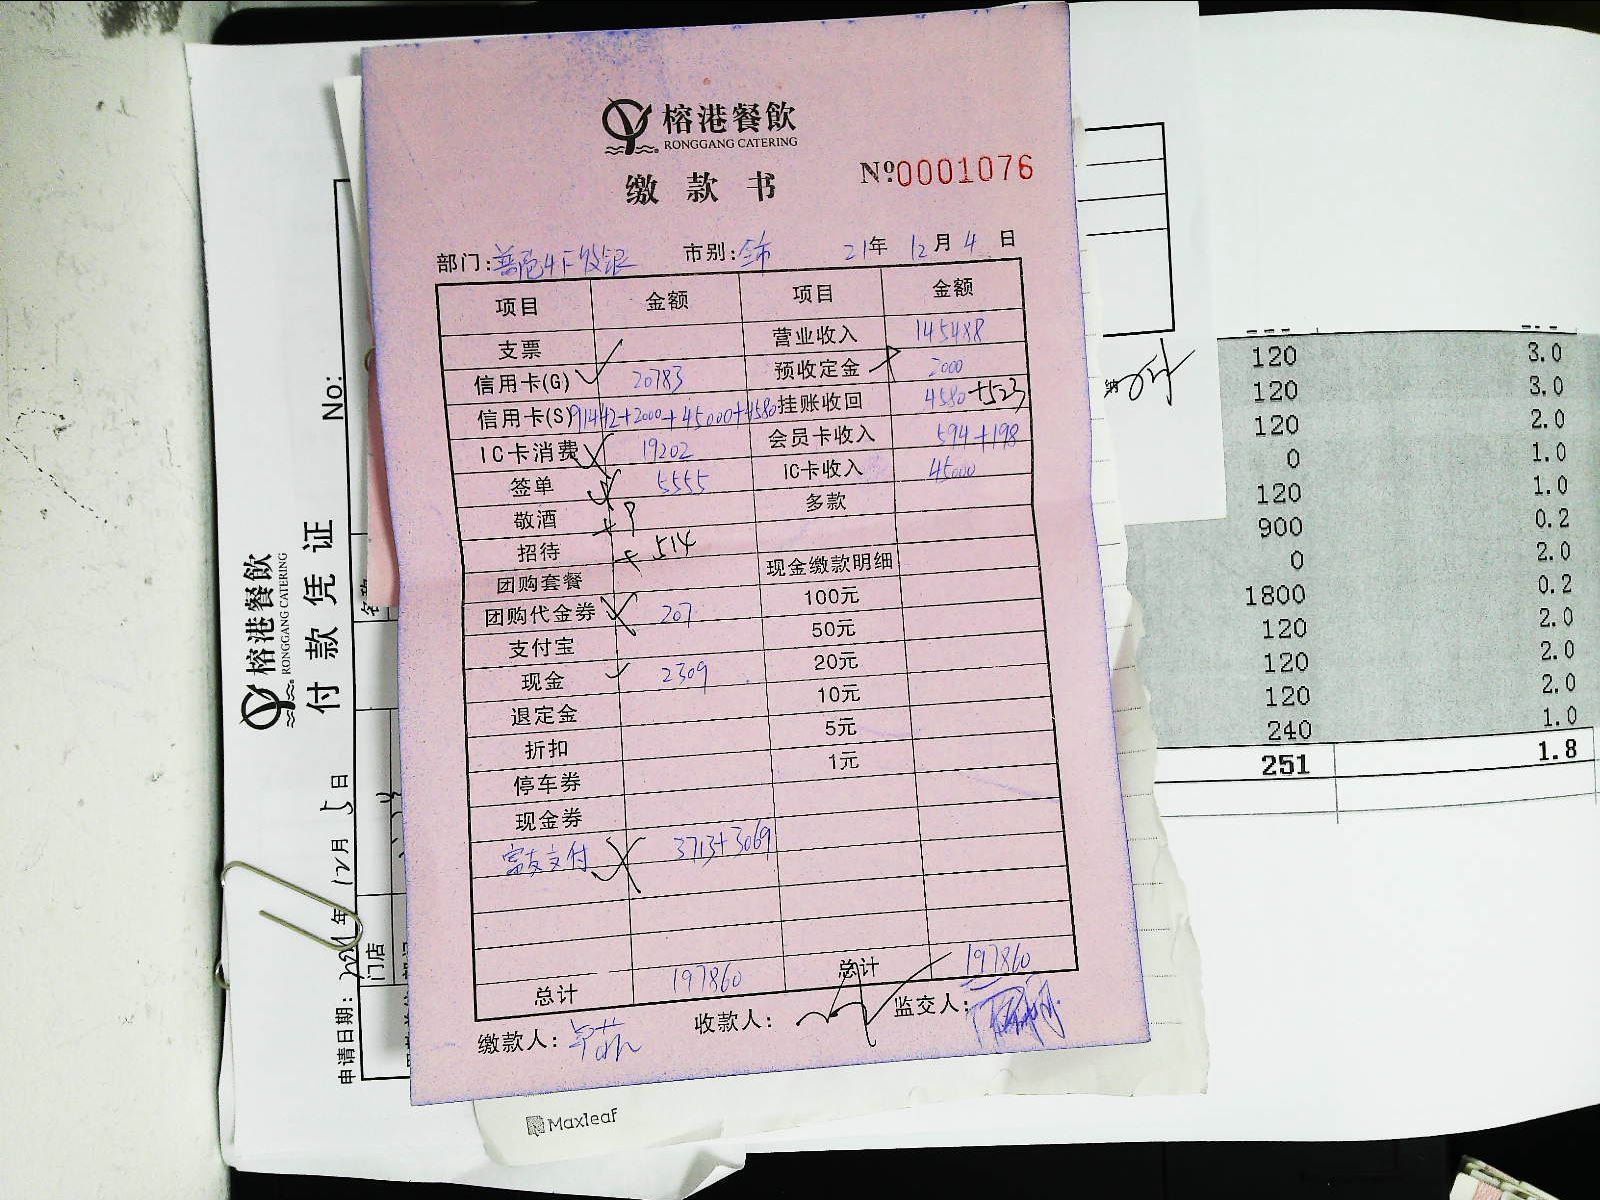 榕港餐飲
RONGGANG CATERING
缴款书
№0001076
部门: 市别:全市 21年 12月 4日
项目 金额 项目 金额
支票 营业收入 145488
信用卡(G) 20783 预收定金 2000
信用卡(S) 91442+2000+45000+4580 挂账收回 4580+523
IC卡消费 19202 会员卡收入 594+198
签单 5555 IC卡收入 45000
敬酒 多款
招待 + 514
团购套餐 现金缴款明细
团购代金券 207 100元
支付宝 50元
现金 2309 20元
退定金 10元
折扣 5元
停车券 1元
现金券
富友支付 3713+3069
总计 197860 总计 197860
缴款人: 收款人: 监交人:
Maxleaf
榕港餐飲
RONGGANG CATERING
付款凭证
No:
申请日期: 2021年 12月 5日
门店
120 3.0
120 3.0
120 2.0
0 1.0
120 1.0
900 0.2
0 2.0
1800 0.2
120 2.0
120 2.0
120 2.0
240 1.0
251 1.8